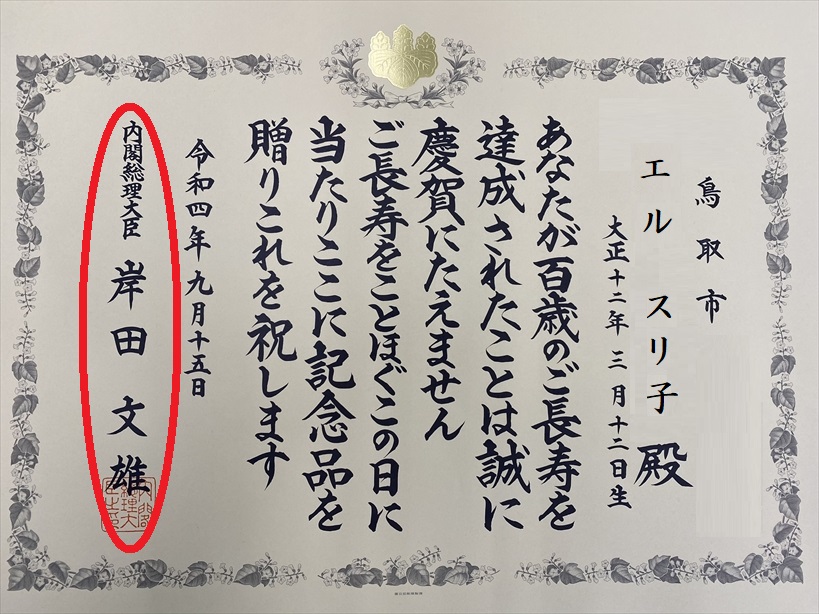 鳥取市
エル　スリ子　殿
大正十二年三月十二日生
あなたが百歳のご長寿を
達成されたことは誠に
慶賀にたえません
ご長寿をことほぐこの日に
当たりここに記念品を
贈りこれを祝します
令和四年九月十五日
内閣総理大臣　岸田文雄